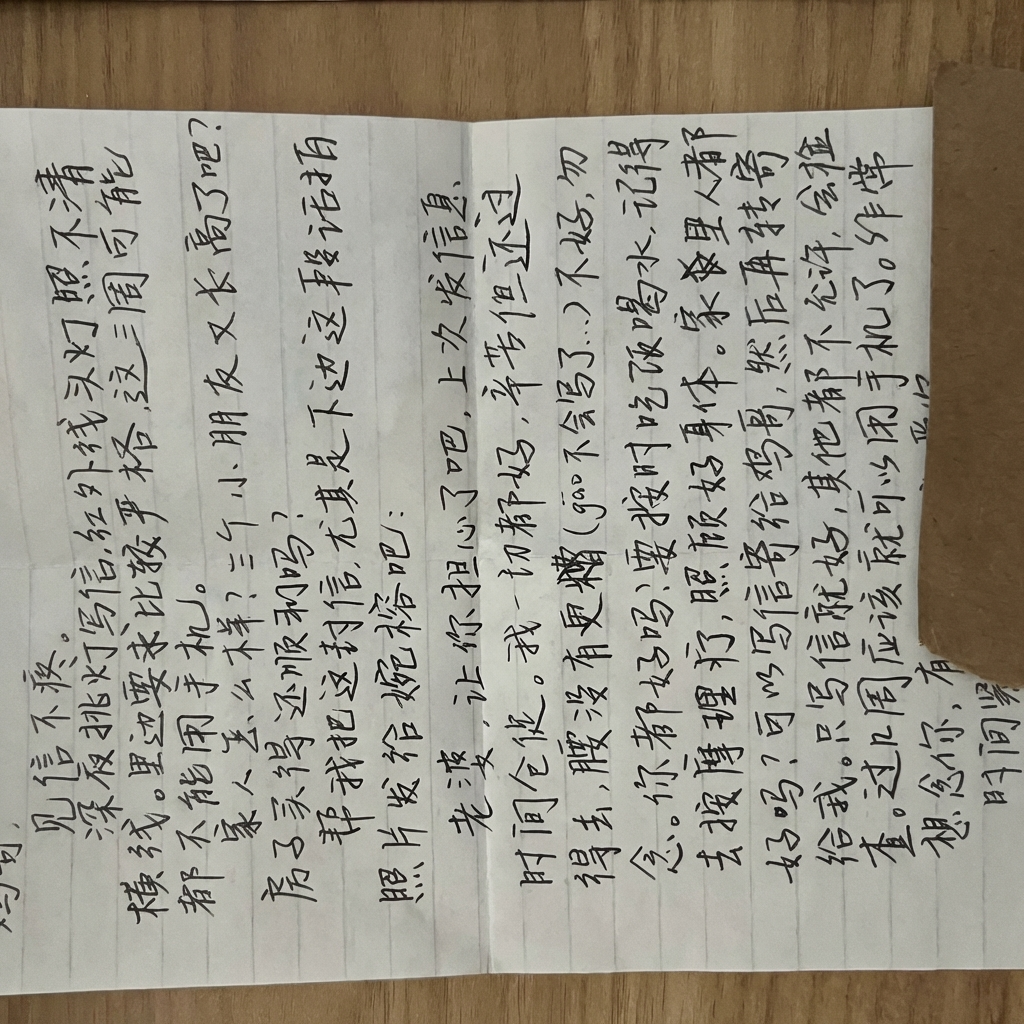 见信不疼。
深夜挑灯写信,红外线头灯照不清
横线。里边要求比较严格,这三周可能
都不能用手机。
家人怎么样?三个小朋友又长高了吧?
房子买得还顺利吗?
帮我把这封信,尤其是下边这段话拍
照片发给婉榕吧:
老婆,让你担心了吧,上次发信息,
时间仓促。我一切都好,辛苦但还过
得去,腰没有更糟(gao不会写了…)不好,勿
念。你都好吗?要按时吃饭喝水,记得
去按摩理疗,照顾好身体。家里人都
好吗?可以写信寄给鸡哥,然后再转寄
给我。只写信就好,其他都不允许,会检
查。过口周应该就可以用手机了。非常
想念你,有
时间紧